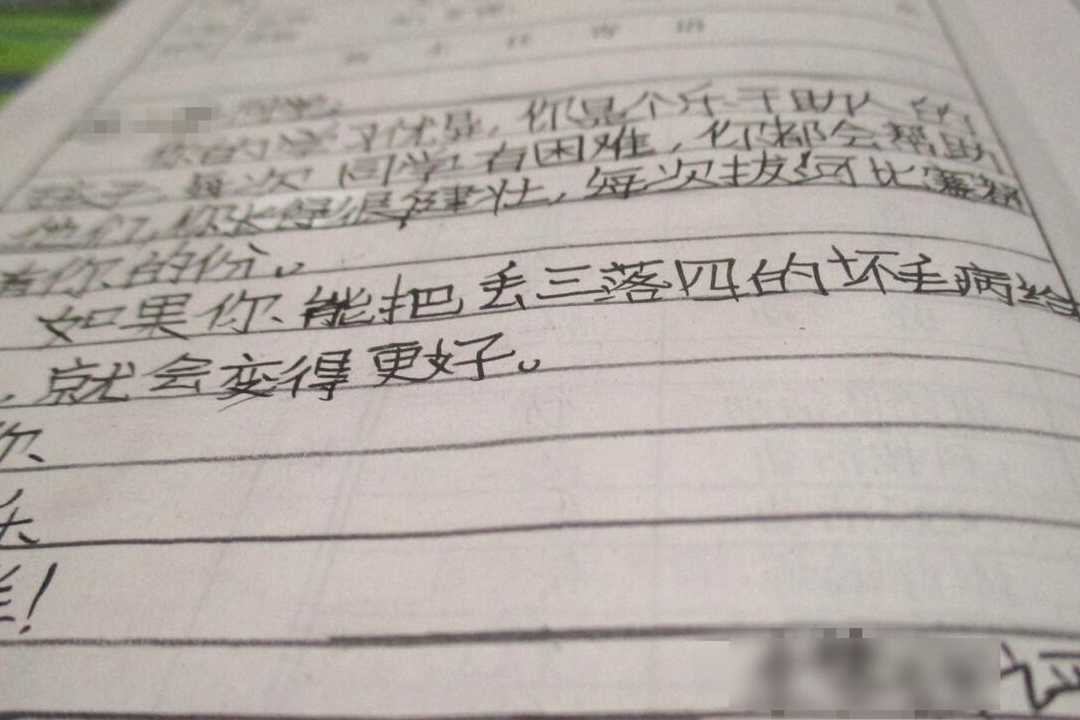 你的学习优异，你是个乐于助人的
孩子，每次同学有困难，你都会帮助
他们，你长得很健壮，每次拔河比赛都
有你的份。
如果你能把丢三落四的坏毛病给
，就会变得更好。
你
乐
！